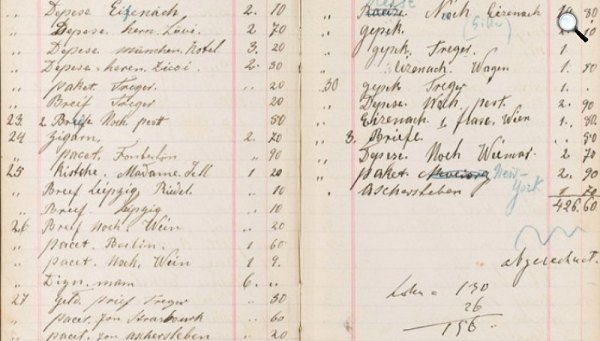 " Depesse Eisenach 2. 10
" Depesse. herrn. Lövi. 2 70
" Depese. münchen. hotel 3. 20
" Depese. heren. Zici. 2. 30
" paket. Treger. 20
" Breif Treger 20
23 2 Breife Noch pest 50
24 Zigarn, 2. 70
" pacet. " 90
25 Kirsche. Madame. Tell 1 20
" Breef Leipzig Riedel. " 10
" Breif. Leipzig " 10
26 Breif Noch. Wein " 20
" pacet. Berlin. 1 60
" pacet. Noch. Wein 1 9.
" Dign. mam 6. "
27 Geld. prief Treger " 30
" pacet. fon " 60
" pacet. fon aschersleben " 20
Noch Eisenach 80
" gepek.
" gepek. Treger. 1
Eizenach. Wagen 1. 40
" 30 gepek Treger 1
" Depese. Noch. pest. 2. 90
" Eizenach 1 flasc. Wien 1. 80
" 3. Briefe. 50
" Depese. Noch Weimar. 2 70
" paket New-York 2. 90
" aschersleben 1 70
426.60
abgerechnet.
130
26
156